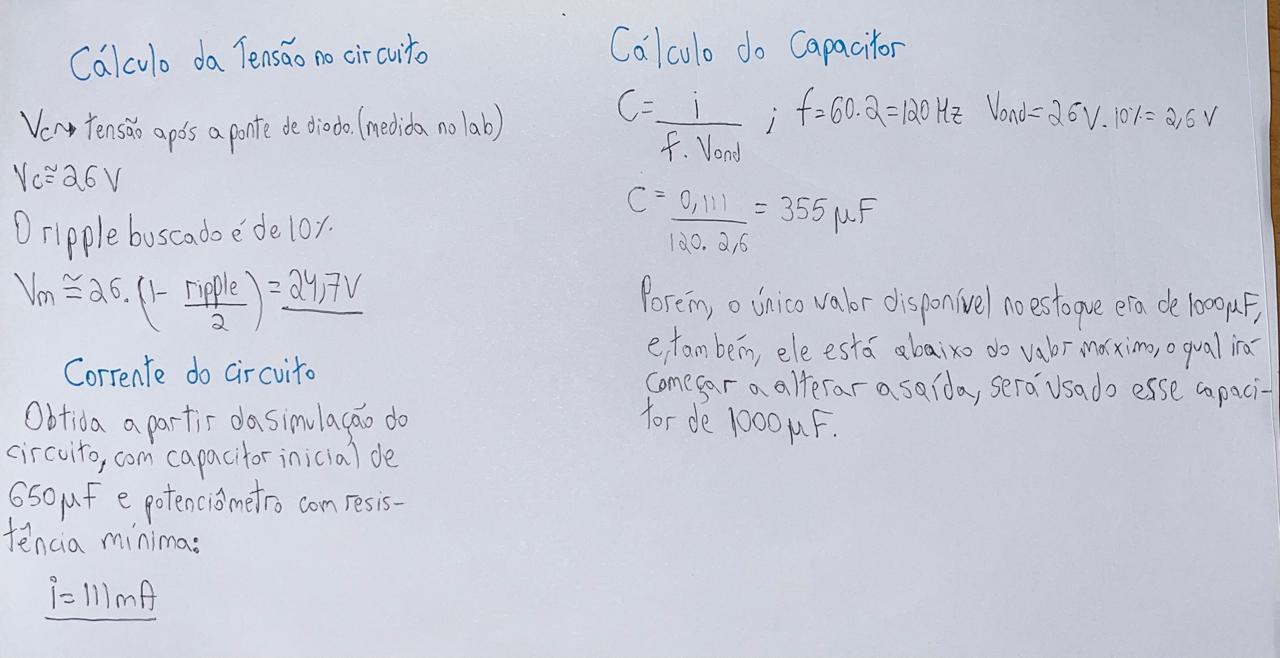 Cálculo da Tensão no circuito
Vc↝ tensão após a ponte de diodo. (medida no lab)
Vc≅26 V
O ripple buscado é de 10%
Vm ≅ 26. (1- ripple/2) = 24,7V
Corrente do circuito
Obtida a partir da simulação do
circuito, com capacitor inicial de
650μF e potenciômetro com resis-
tência mínima:
i=111mA
Cálculo do Capacitor
C= i/(f. Vond) ; f=60.2=120 Hz Vond=26V.10%=2,6 V
C = 0,111/(120. 2,6) = 355 μF
Porém, o único valor disponível no estoque era de 1000μF,
e, também, ele está abaixo do valor máximo, o qual irá
começar a alterar a saída, será usado esse capaci-
tor de 1000μF.